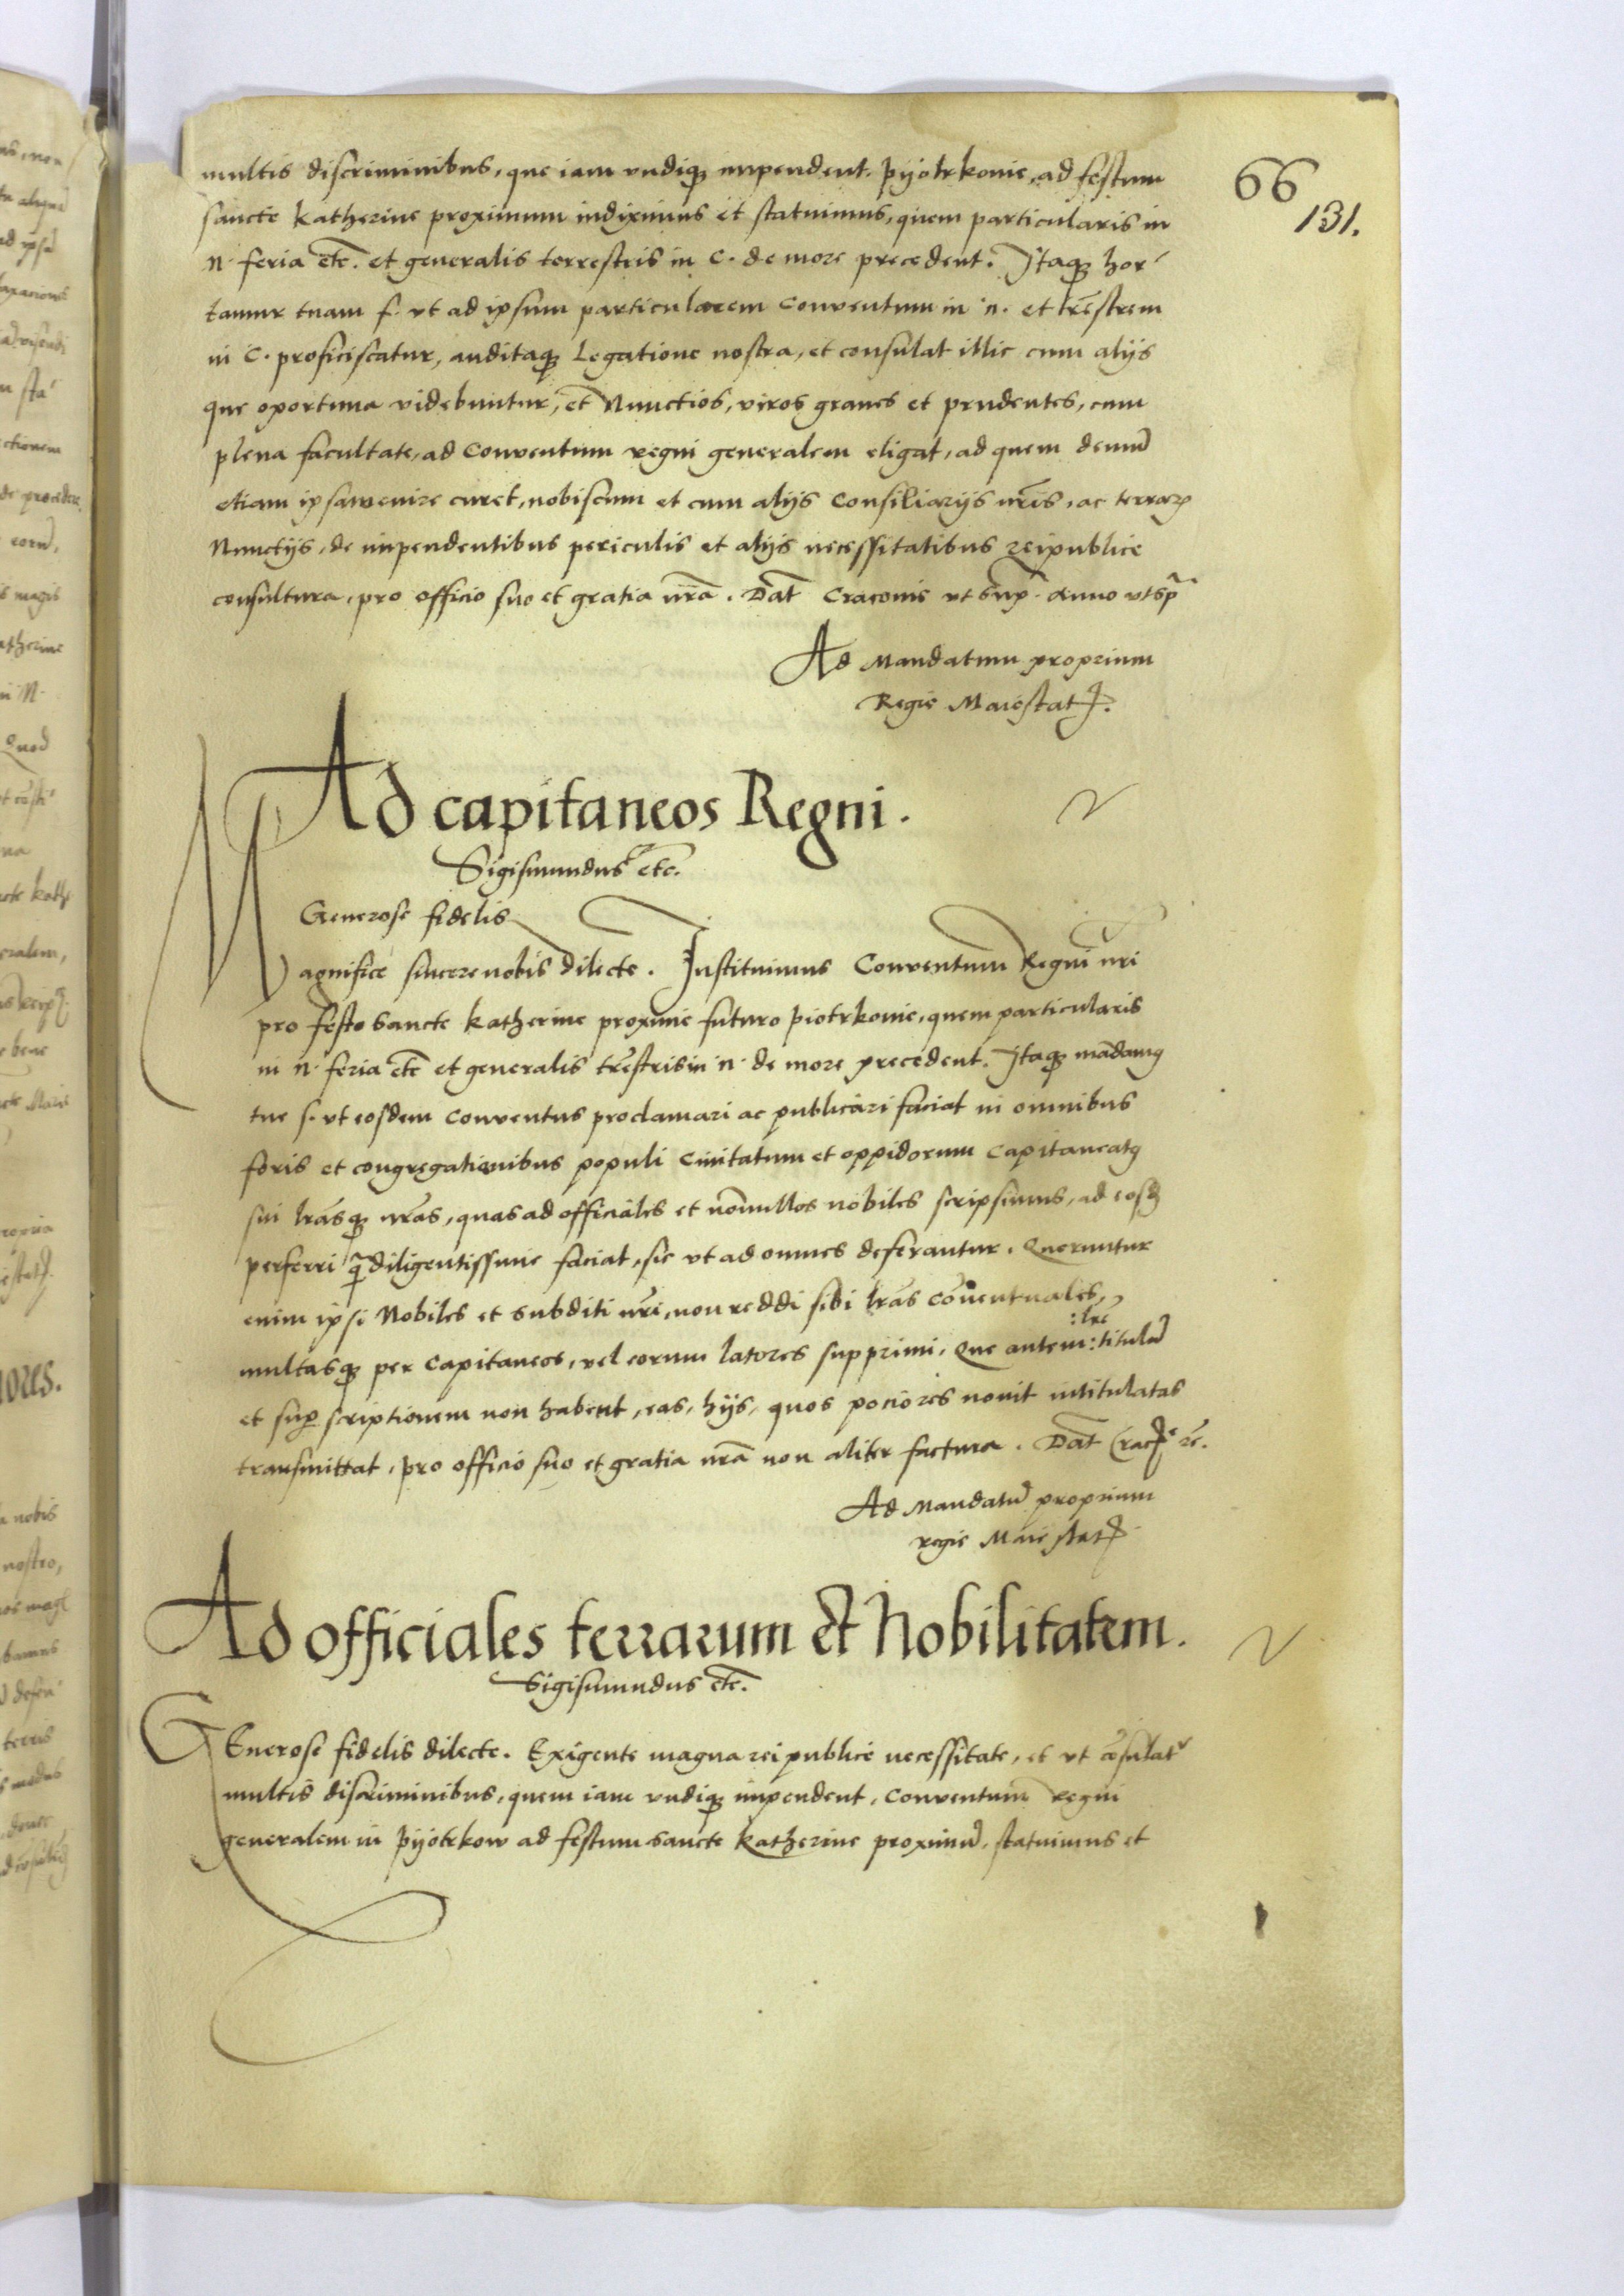 66
131.
multis discriminibus, que iam vndiqꝫ impendent. pyotrkouie, ad festum
sancte Katherine proximum indiximus et statuimus, quem particularis in
N. feria etc̄. et generalis terrestris in C. de more precedent. Itaqꝫ hor
tamur tuam s. vt ad ipsum particularem Conuentum in N. et tr̄estrem
in C. proficiscatur, auditaqꝫ Legatione nostra, et consulat illic cum alijs
que oportuna videbuntur, et Nunctios, viros graues et prudentes, cum
plena facultate, ad Conuentum regni generalem eligat, ad quem demū
etiam ipsa venire curet, nobiscum et cum alijs Consiliarijs nr̄is, ac terrarꝫ
Nunctijs, de impendentibus periculis et alijs necessitatibus reipublice
consultura, pro officio suo et gratia nr̄a. Dat̄ Cracouie vt sup̄. Anno vt sp̄ra
Ad Mandatum proprium
Regie Maiestatꝭ.
Ad capitaneos Regni.
Sigismundus etc̄.
Generose fidelis
Magnifice sincere nobis dilecte. Instituimus Conuentum Regni nr̄i
pro festo Sancte Katherine proxime futuro piotrkouie, quem particularis
in N. feria etc̄ et generalis tr̄estris in N. de more precedent. Itaqꝫ mādamꝰ
tue s. vt eosdem Conuentus proclamari ac publicari faciat in omnibus
foris et congregationibus populi Ciuitatum et oppidorum Capitaneatꝰ
sui lr̄asqꝫ nr̄as, quas ad officiales et nōnullos nobiles scripsimus, ad eosdꝫ
perferri q̄ diligentissime faciat, sic vt ad omnes deferantur. Queruntur
enim ipsi Nobiles et subditi nr̄i, non reddi sibi lr̄as cōuentuales,
multasqꝫ per Capitaneos, vel eorum latores supprimi. Que autem :lr̄e: titulū
et sup̱scriptionem non habent, eas, hijs, quos pociores nouit intitulatas
transmittat, pro officio suo et gratia nr̄a non aliter factura. Dat̄ Cracꝭ etc̄.
Ad Mandatū proprium
regie Maiestatꝭ
Ad officiales terrarum et Nobilitatem.
Sigismundus etc̄.
GEnerose fidelis dilecte. Exigente magna reipublice necessitate, et vt cōsulatur
multis discriminibus, quem iam vndiqꝫ impendent, Conuentum regni
generalem in pyotrkow ad festum sancte Katherine proximū, statuimus et